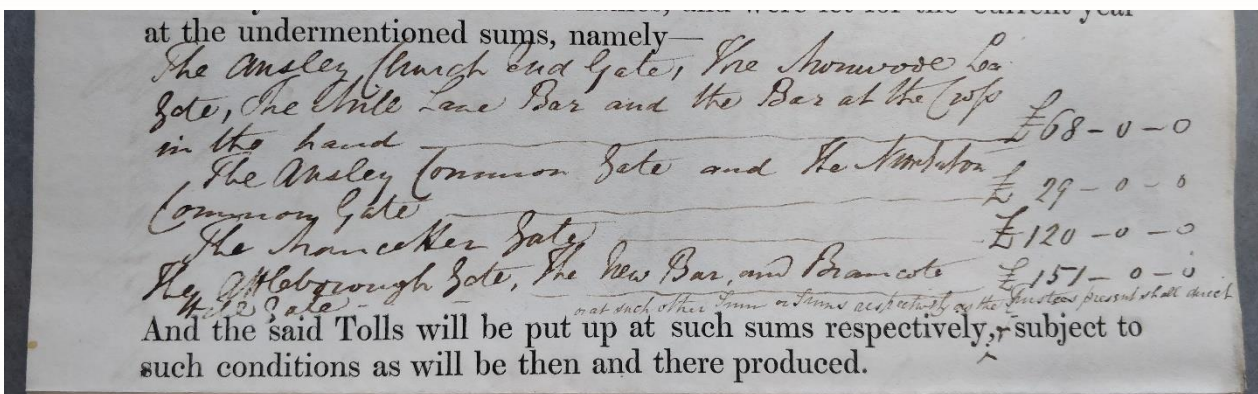 and were let for the current year
at the undermentioned sums, namely—
The Ansley Church End Gate, The Monwode Lea
Gate, The Mill Lane Bar and the Bar at the Cross
in the hand £68-0-0
The Ansley Common Gate and the Nuneaton
Common Gate £ 29-0-0
The Mancetter Gate £120-0-0
The Attleborough Gate, The New Bar, and Bramcote £151-0-0
Gate or at such other Sum or Sums respectively as the Trustees present shall direct
And the said Tolls will be put up at such sums respectively, subject to
such conditions as will be then and there produced.